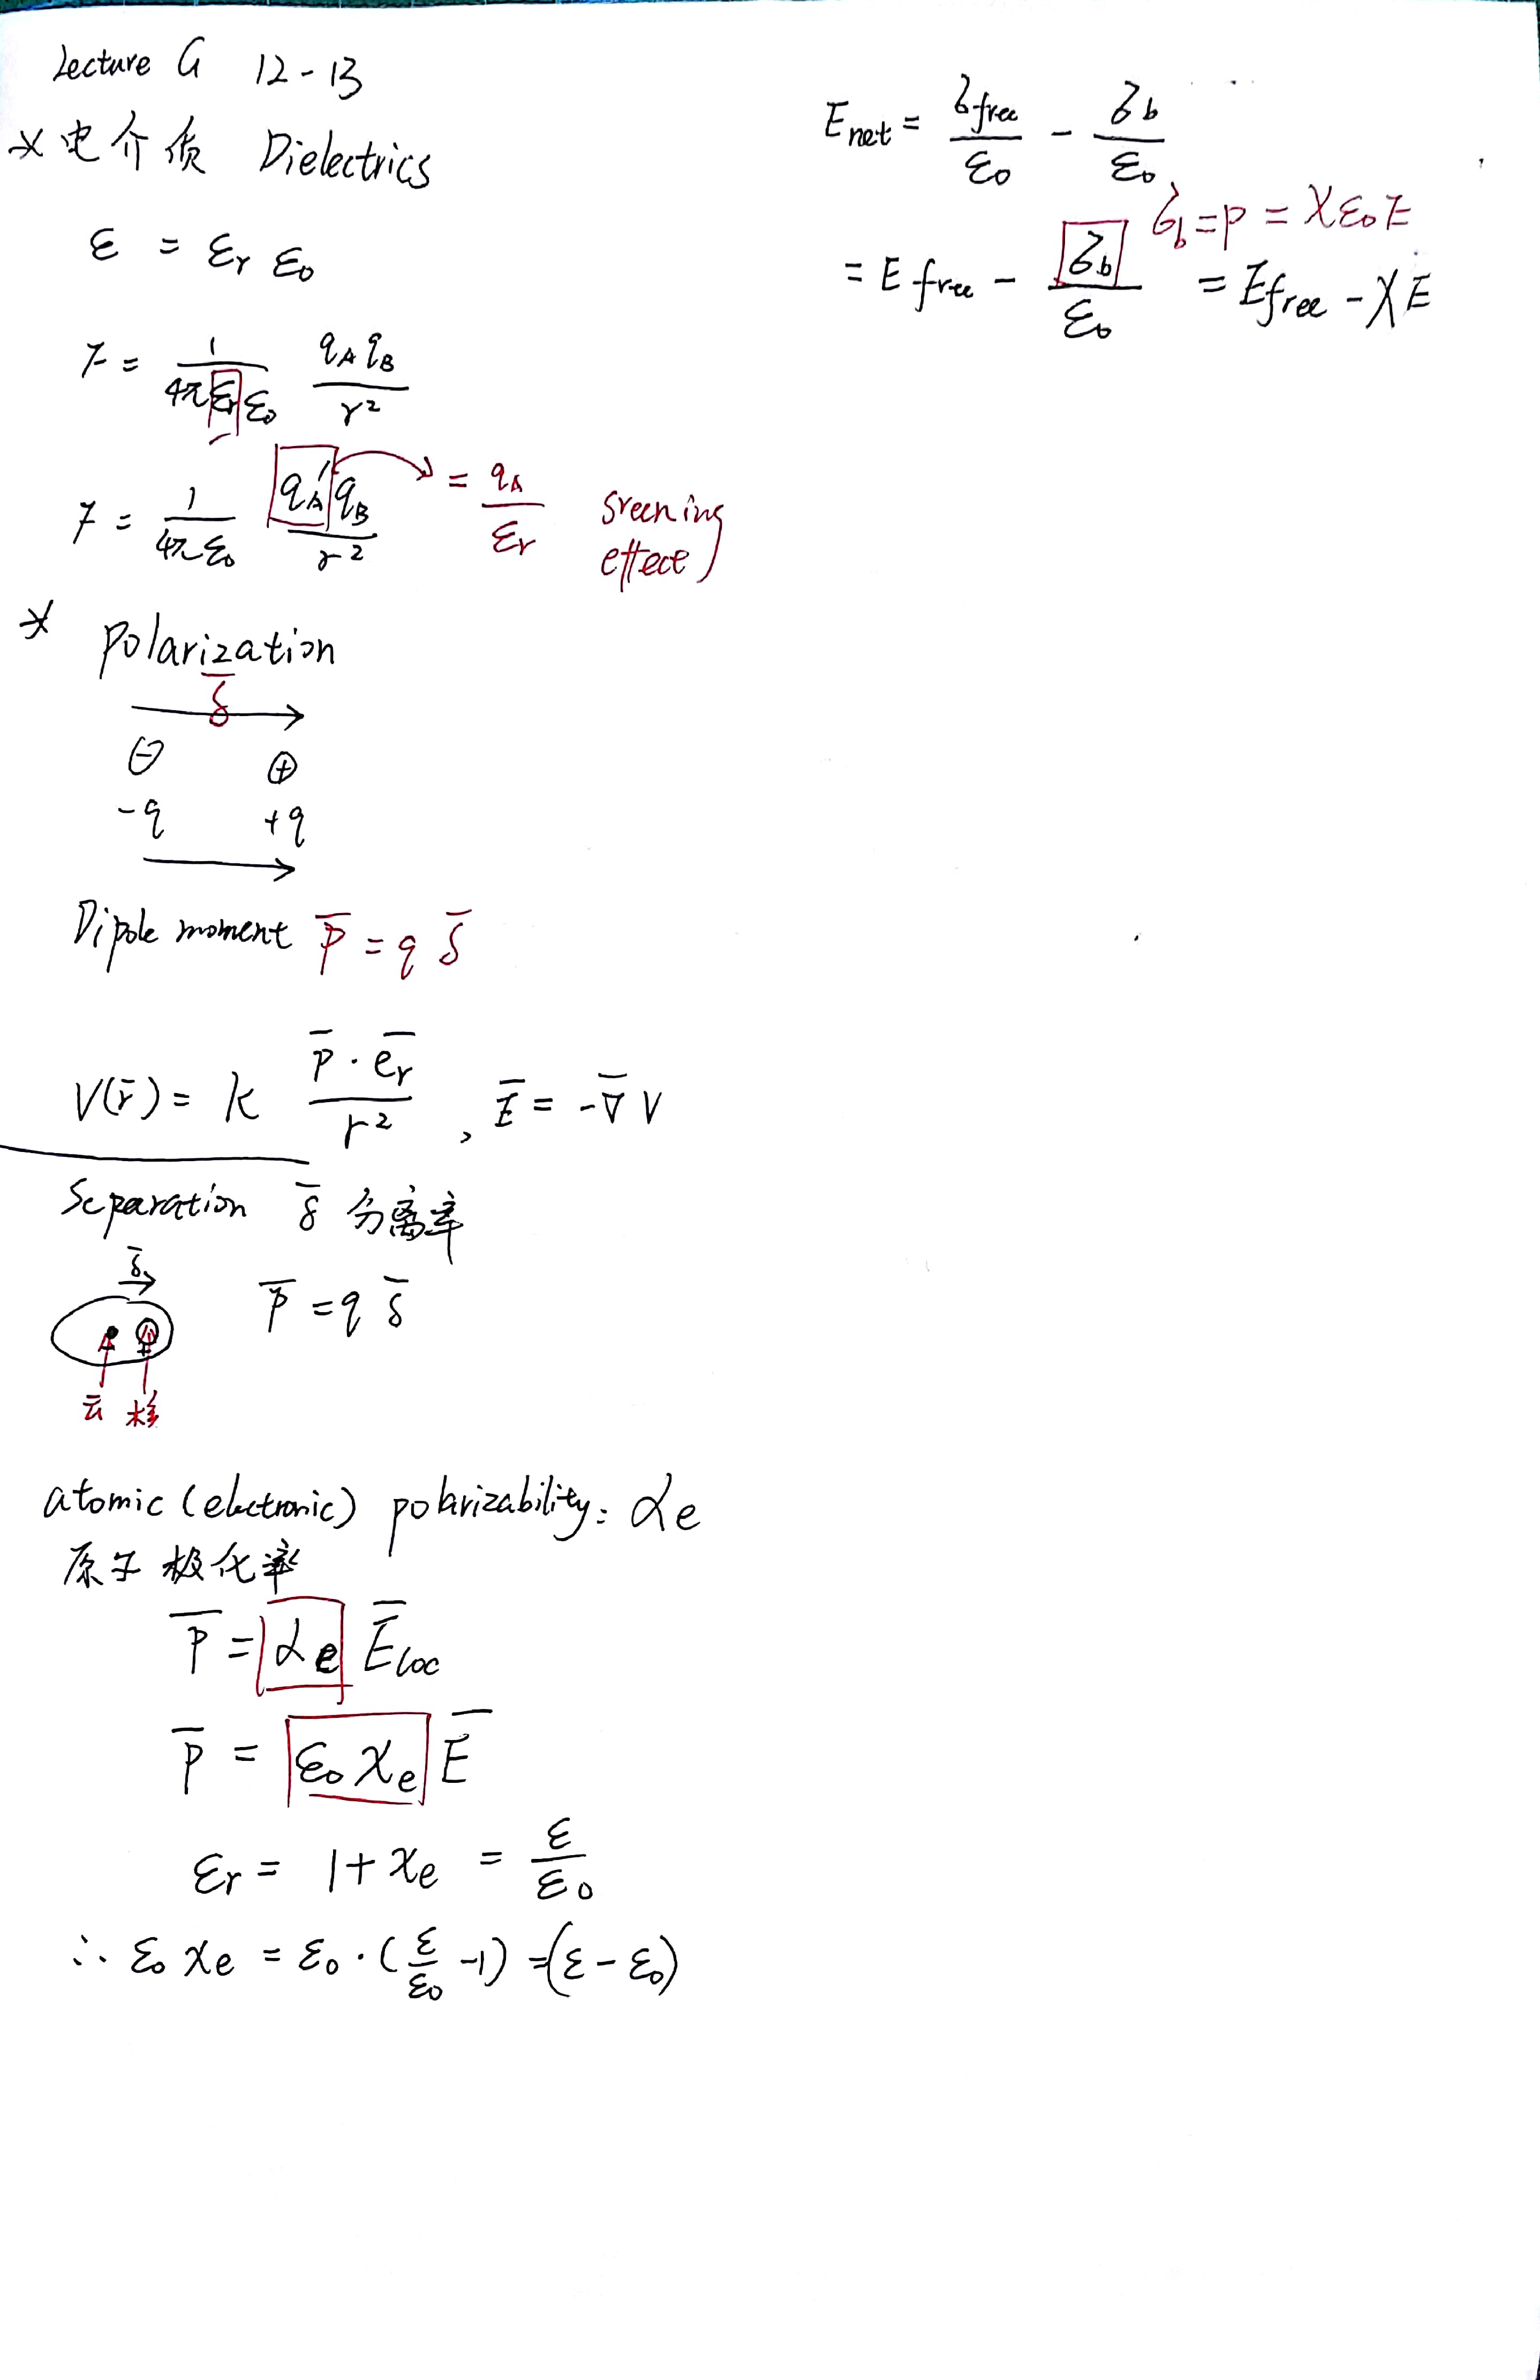 Lecture G 12-13
* 电介质 Dielectrics
ε = εr ε0
F = 1/(4π εr ε0) qA qB / r²
F = 1/(4π ε0) qA' qB / r² → = qA / εr Sreening
effect
* polarization
δ̄
⊖ ⊕
-q +q
Dipole moment p̄ = q δ̄
V(r̄) = k p̄ · ēr / r² , Ē = -∇̄ V
Separation δ̄ 分离率
δ̄
p̄ = q δ̄
云 核
atomic (electronic) polarizability: αe
原子极化率
p̄ = αe Ēloc
p̄ = ε0 χe Ē
εr = 1 + χe = ε / ε0
∴ ε0 χe = ε0 · (ε/ε0 - 1) = (ε - ε0)
Enet = σfree / ε0 - σb / ε0
σb = p = χ ε0 E
= Efree - σb / ε0 = Efree - χE